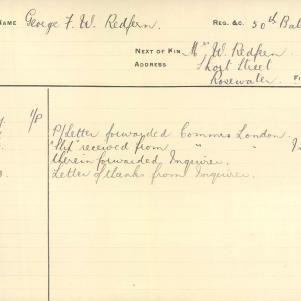 NAME George F. W. Redfern. REG. &C. 50th Bat
NEXT OF KIN Mr W. Redfern
ADDRESS Short Street
Rosewater. FI
1/P P/Letter forwarded Commrs London.
received from " "
therein forwarded, Inquirer.
Letter of thanks from Inquirer.